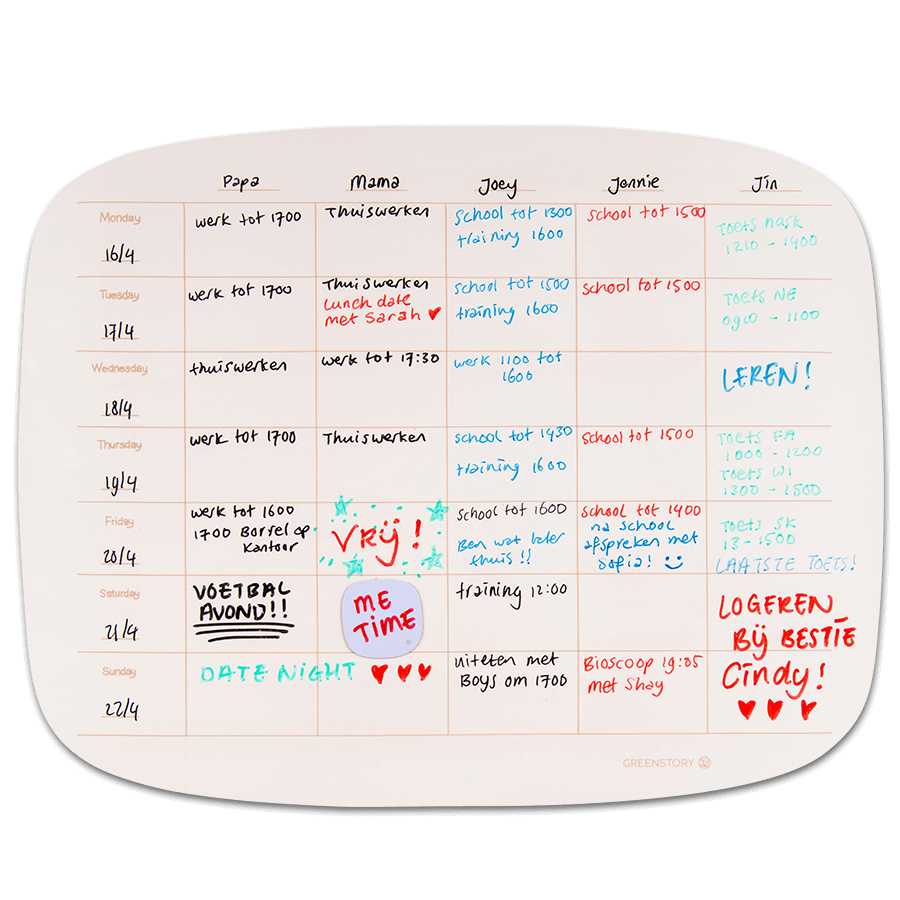 Papa Mama Joey Jennie Jin
Monday
16/4
werk tot 1700
Thuiswerken
school tot 1300
training 1600
school tot 1500
Toets nask
1210 - 1400
Tuesday
17/4
werk tot 1700
Thuiswerken
Lunch date
met Sarah ♥
school tot 1500
training 1600
school tot 1500
Toets NE
0910 - 1100
Wednesday
18/4
thuiswerken
werk tot 17:30
werk 1100 tot
1600
LEREN!
Thursday
19/4
werk tot 1700
Thuiswerken
school tot 1430
training 1600
school tot 1500
Toets FA
1000 - 1200
Toets WI
1300 - 1500
Friday
20/4
werk tot 1600
1700 Borrel op
Kantoor
VRIJ!
school tot 1600
Ben wat later
thuis!!
school tot 1400
na school
afspreken met
Sofia! ☺
Toets SK
13 - 1500
LAATSTE TOETS!
Saturday
21/4
VOETBAL
AVOND!!
ME
TIME
training 12:00
LOGEREN
BIJ BESTIE
Sunday
22/4
DATE NIGHT ♥ ♥ ♥
uiteten met
Boys om 1700
Bioscoop 19:05
met Shay
Cindy!
♥ ♥ ♥
GREENSTORY